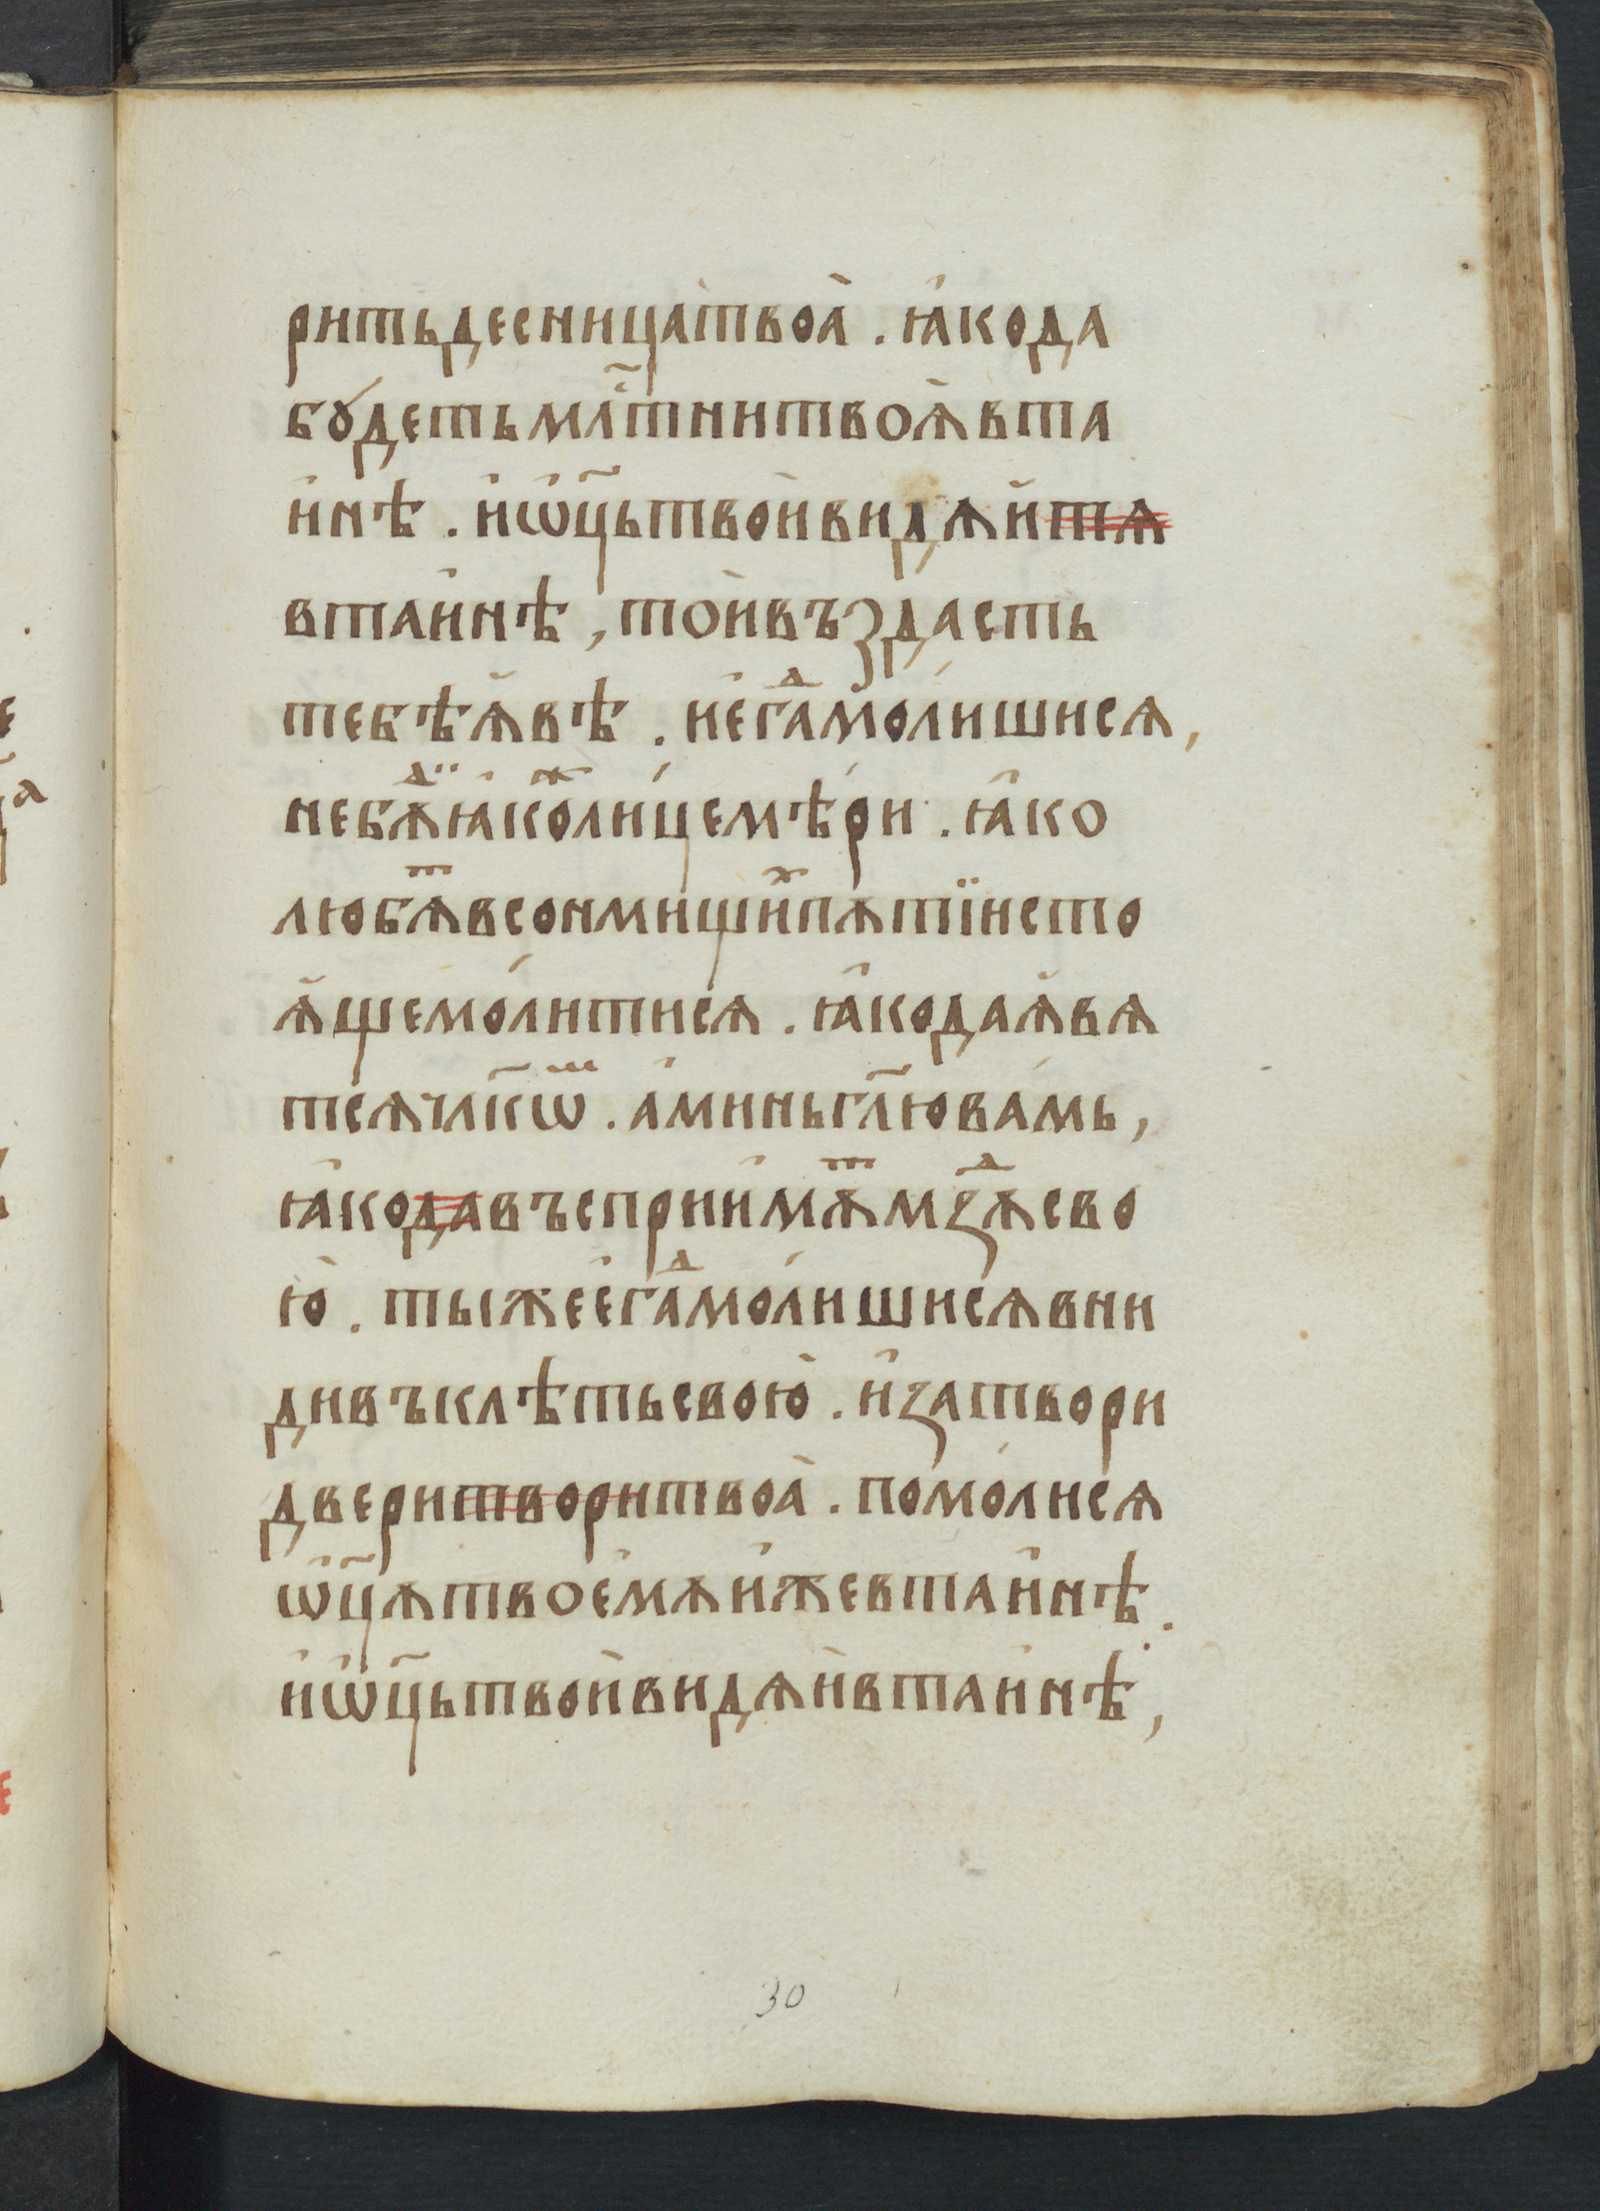 рить десница твоа̀ . ꙗ҆ко да
бꙋ́деть мл҃тни твоѧ̀ в та
и҆нѣ . и҆ ѡ҆ц҃ь твоѝ видѧ и̓ тѧ
в таи҆нѣ , тоѝ въздасть
тебѣ ѧ҆вѣ . и҆ е҆гдⷣа мо́лишисѧ ,
не бѫдⷣи ꙗ҆коⷤ лицемѣ́ри . ꙗ҆ко
любѧⷮ в сонмищиⷯ и҆ пѫтїи сто
ѧ҆ще моли́тисѧ . ꙗ҆ко да ѧ҆вѧ
тсѧ чл҃кѡⷨ . а҆минь гл҃ю ва́мь ,
ꙗ҆ко да въсприи҆мѫⷮ мꙁⷣѫ сво
ю̀ . ты же е҆гдⷣа мо́лишисѧ вни
ди въ клѣть свою̀ . и҆ ꙁатвори
двери твори твоа̀ . помо́лисѧ
ѡ҆ц҃ѫ твое҆мѫ и҆же в таи҆нѣ .
и҆ ѡ҆ц҃ь твоѝ видѧи̓ в таи҆нѣ ,
30